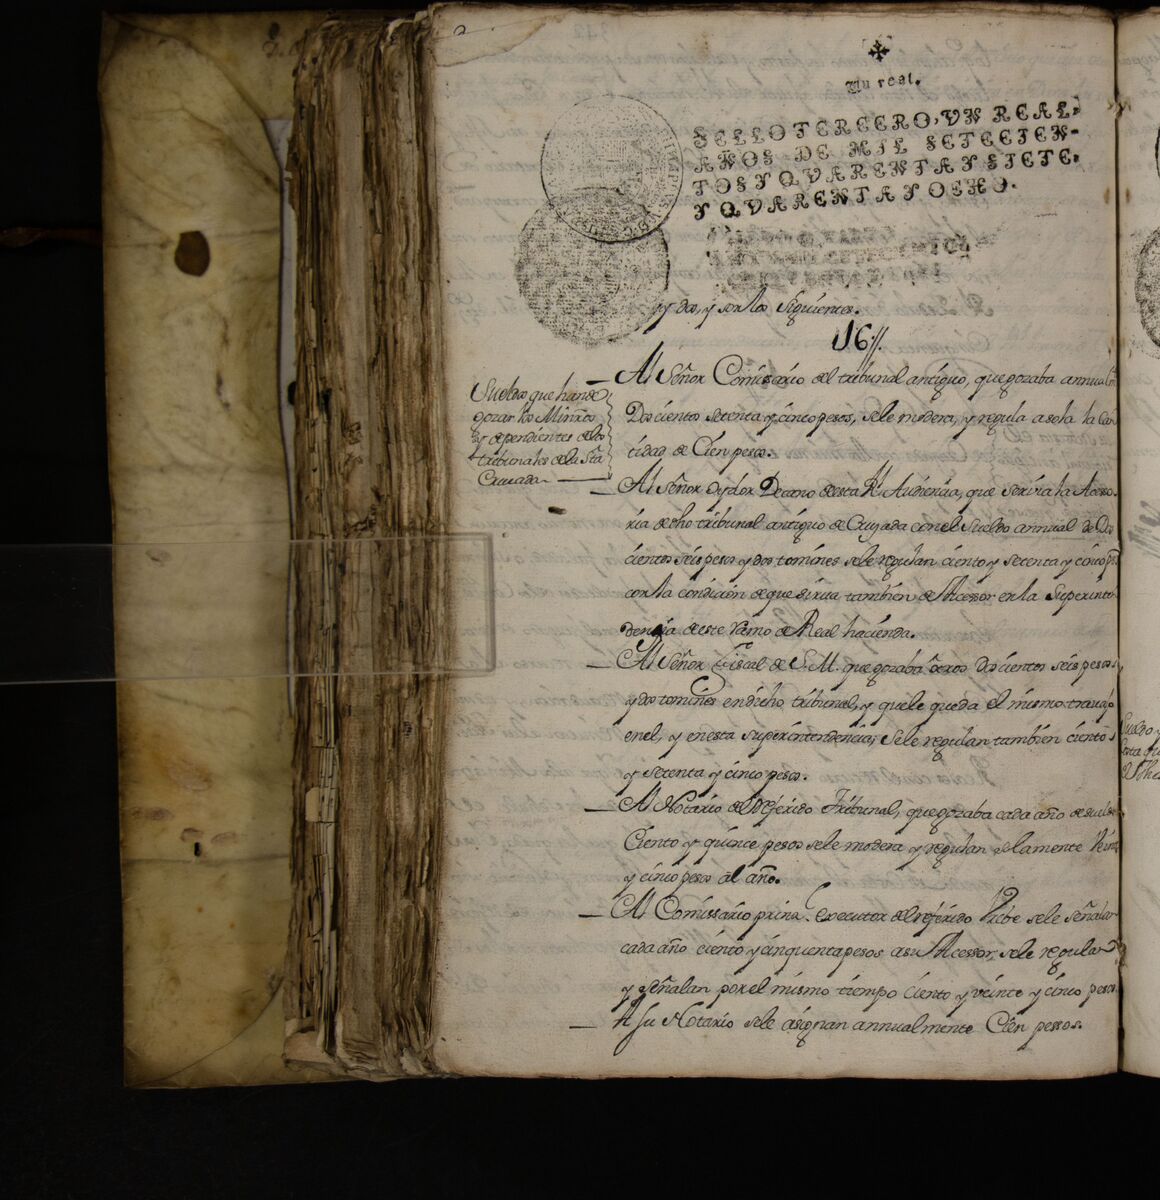 Un real.
SELLO TERCERO, UN REAL,
AÑOS DE MIL SETECIEN-
TOS Y QVARENTA Y SIETE,
Y QVARENTA Y OCHO.
y dos, y son los Siguientes.
16//.
Sueldos que han de
gozar los Minros
y dependientes de los
tribunales de la Sta
Cruzada
Al Señor Comissario del tribunal antiguo, que gozaba annualmte
Dos cientos setenta y cinco pesos, se le modera, y regula a sola la can
tidad de Cien pesos.
Al Señor Oydor Decano de esta Rl Audiencia, que servia la Aceso
ria de dho tribunal antiguo de Cruzada con el Sueldo annual de Dos
cientos seis pesos y dos tomines se le regulan ciento y setenta y cinco ps
con la condición de que sirva tambien de Acessor en la Superinten
dencia de este Ramo de Real hacienda.
Al Señor Fiscal de S. M. que gozaba otros Dos cientos seis pesos
y dos tomines en dicho tribunal, y que le queda el mismo travajo
en el, y en esta superintendencia; se le regulan tambien ciento
y setenta y cinco pesos.
Al Notario del Referido Tribunal, que gozaba cada año de sueldo
Ciento y quince pesos se le modera y regulan solamente Veinte
y cinco pesos al año.
Al Comissario prinzl. executor del referido Tribe se le señalan
cada año ciento y cinquenta pesos a su Acessor, se le regulan
y señalan por el mismo tiempo ciento y veinte y cinco pesos
A su Notario se le asignan annualmente Cien pessos.